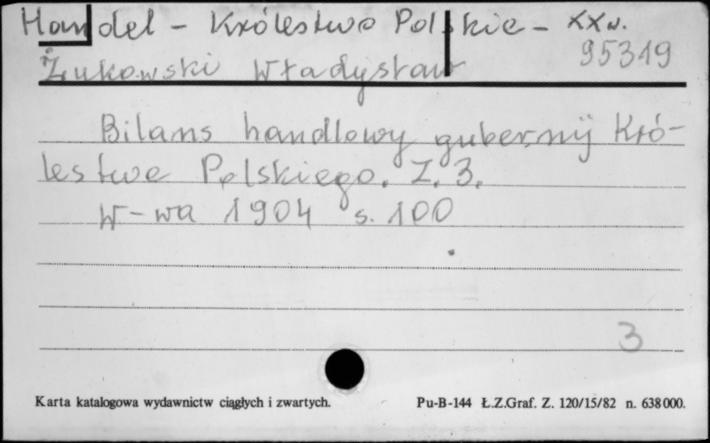 Handel - Królestwo Polskie - XX w.
95319
Żukowski Władysław
Bilans handlowy gubernij Kró-
lestwa Polskiego. Z. 3.
W-wa 1904 s. 100
3
Karta katalogowa wydawnictw ciągłych i zwartych. Pu-B-144 Ł.Z.Graf. Z. 120/15/82 n. 638000.